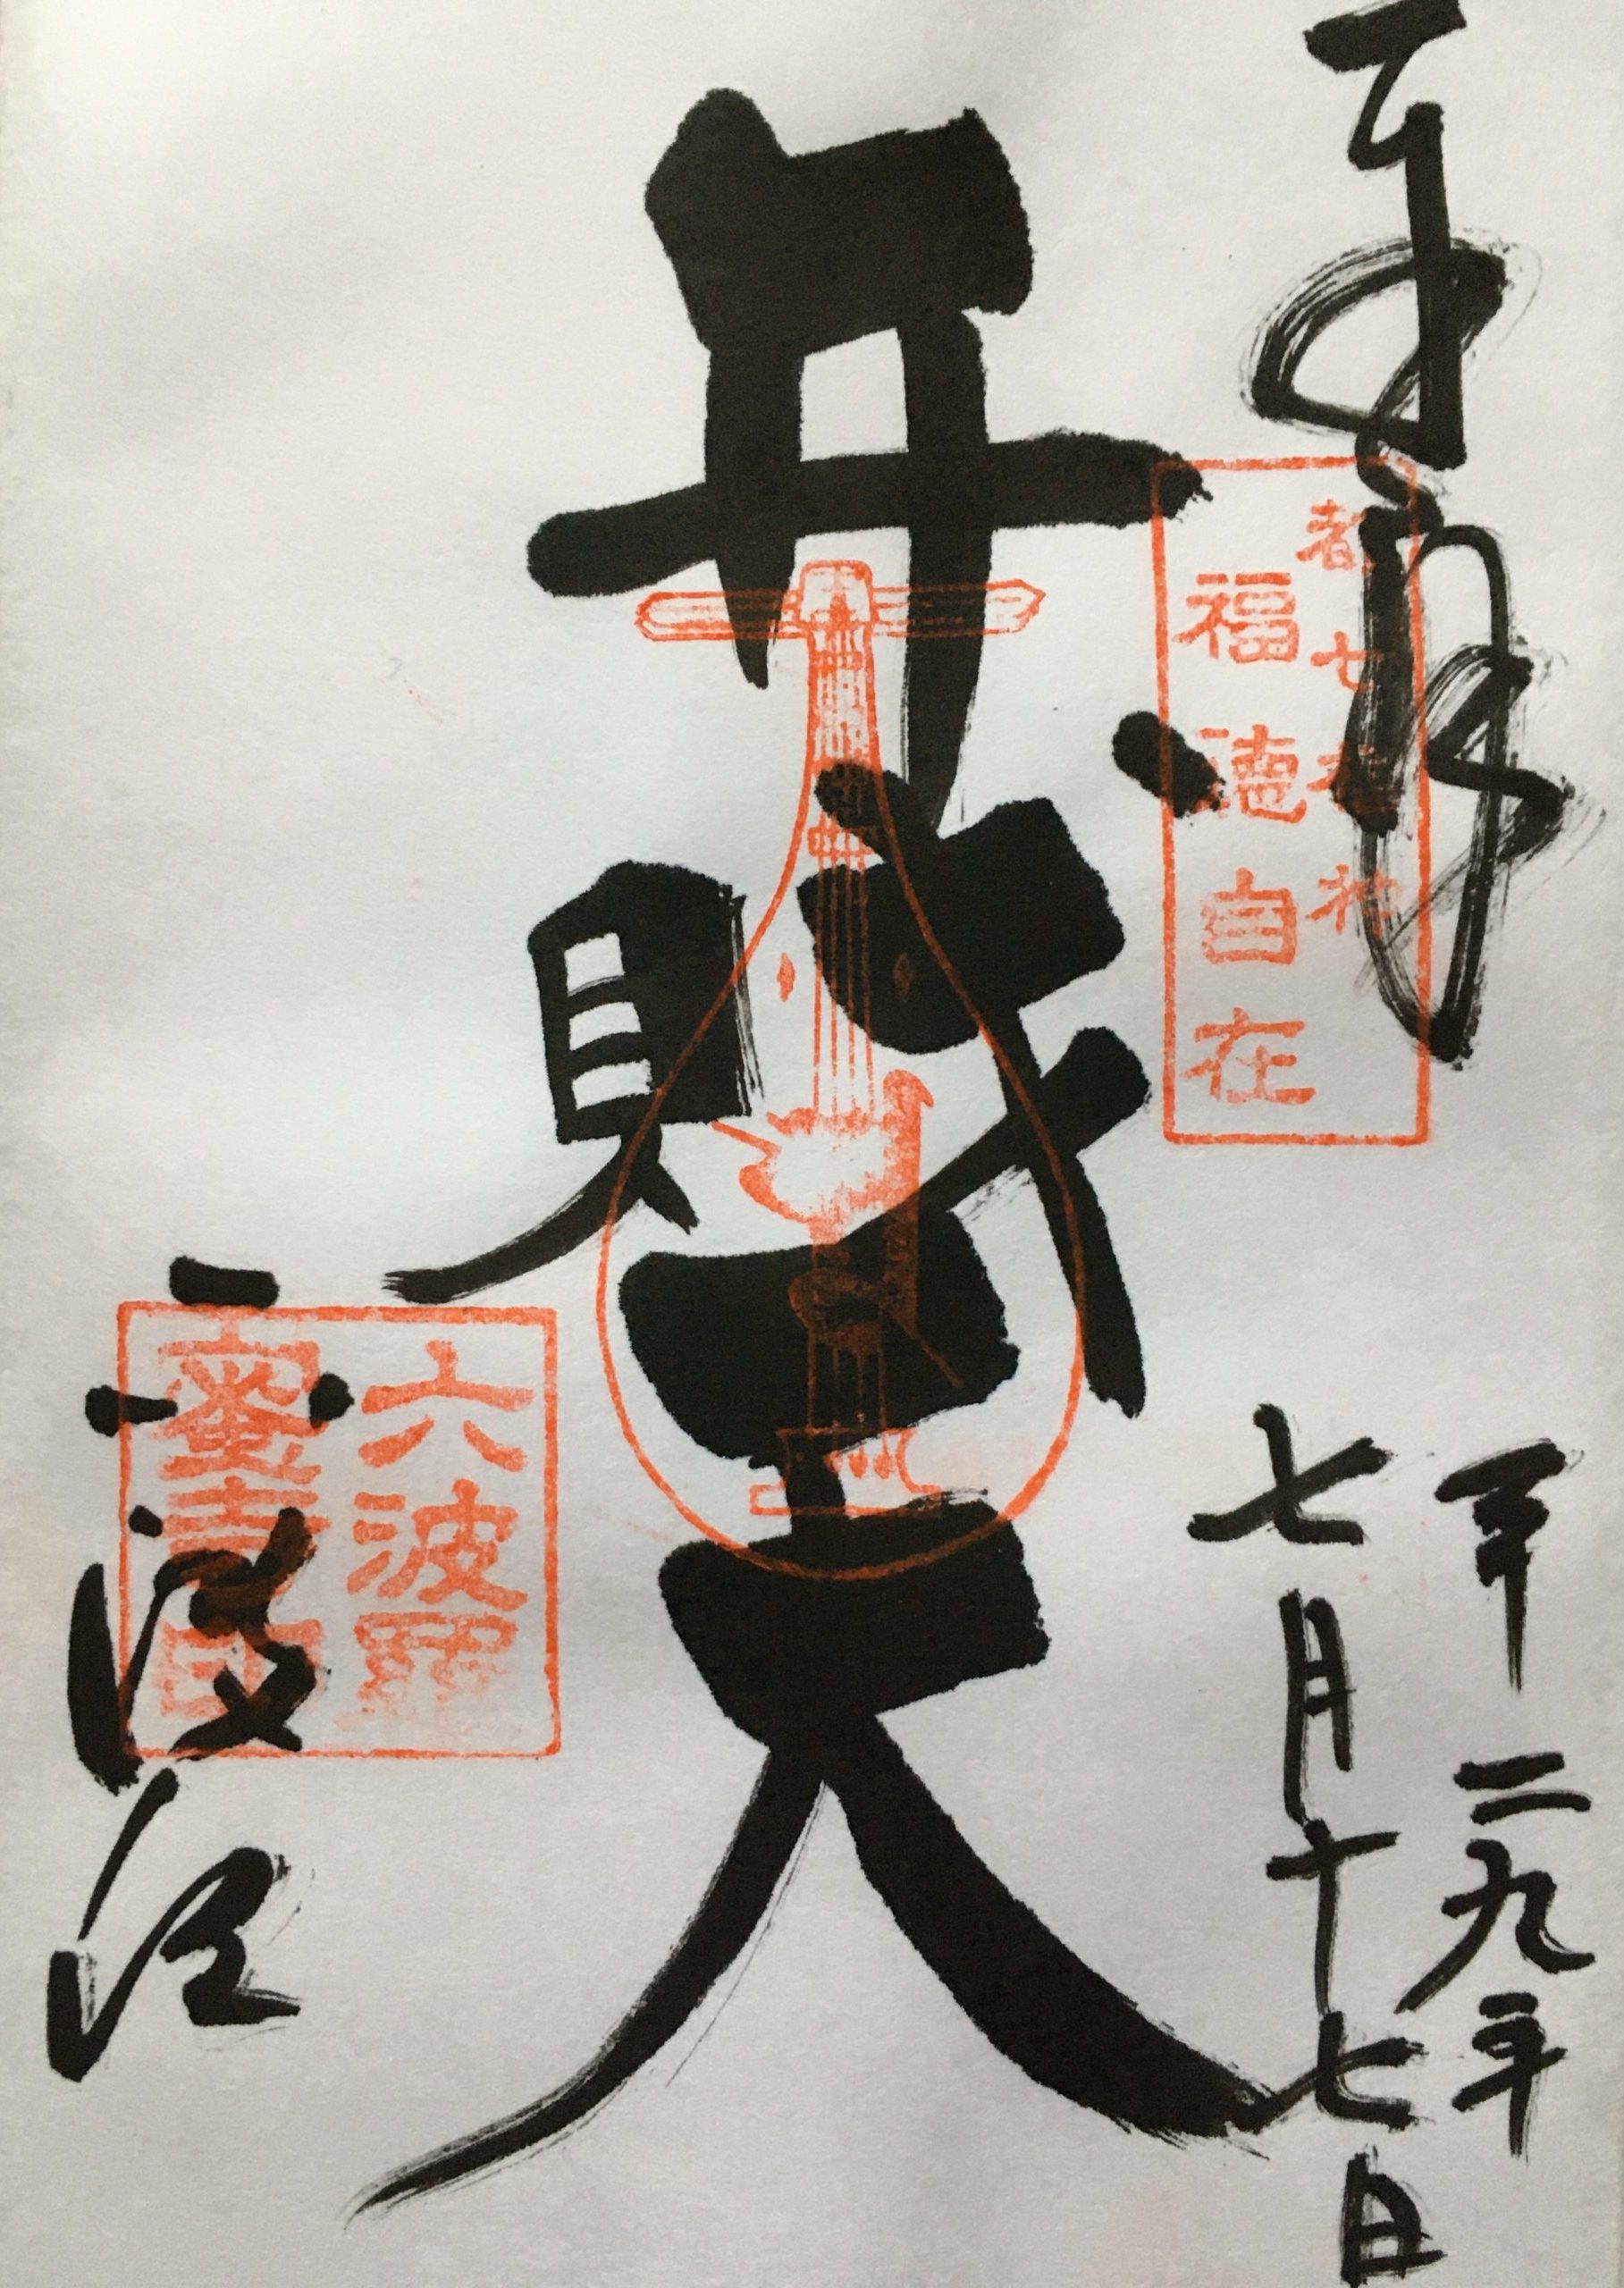 奉拝
平二九年
七月十七日
都七福神
福徳自在
弁財天
六波羅
蜜寺印
六波羅